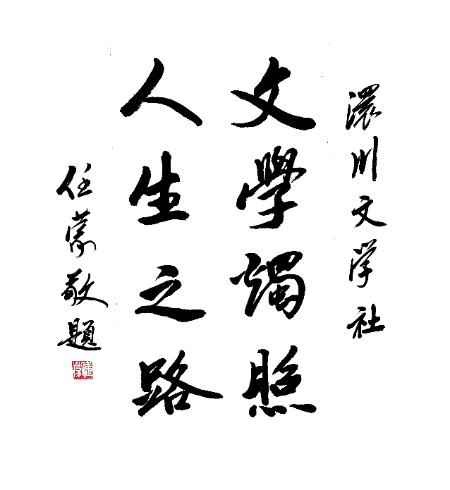 澴川文学社
文學燭照
人生之路
任蒙敬題